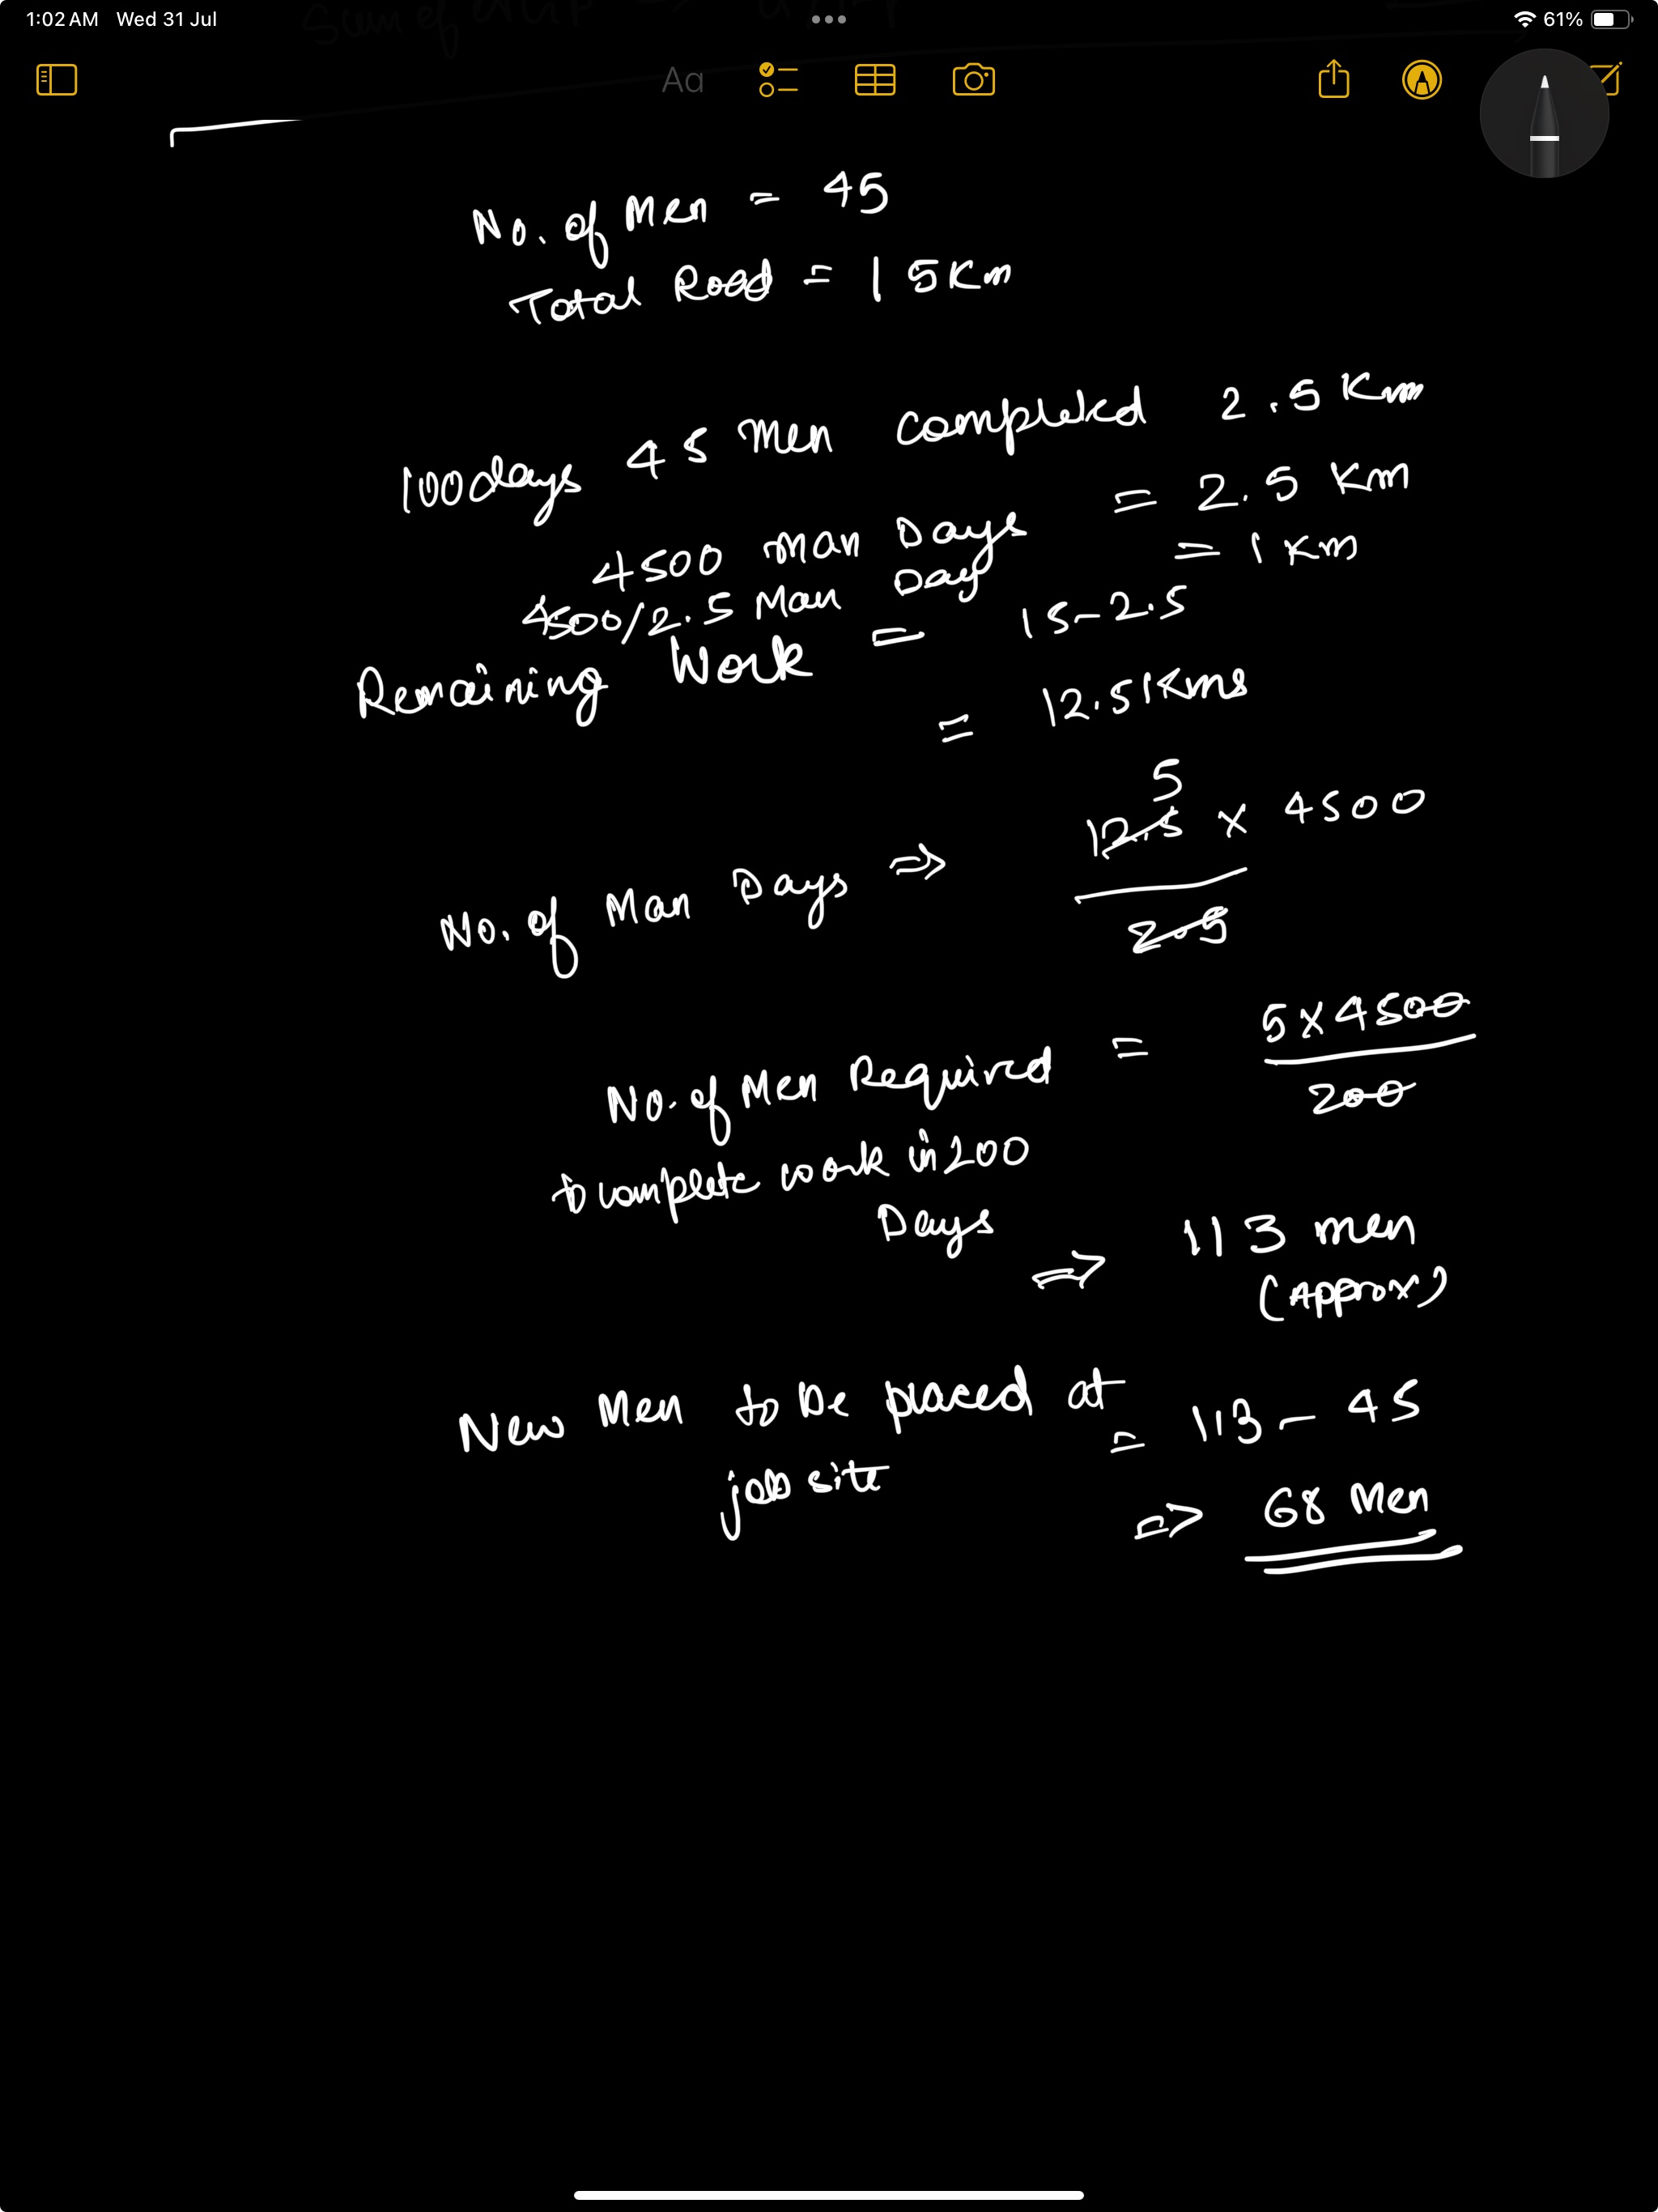 1:02 AM Wed 31 Jul
61%
Sum of
Aa
No. of Men = 45
Total Road = 15 Km
100 days 45 Men completed 2.5 Km
4500 Man Days = 2.5 Km
4500/2.5 Man Day = 1 Km
Remaining Work = 15-2.5
= 12.5 Kms
5
No. of Man Days ⇒ 12.5 × 4500
2.5
No. of Men Required = 5×4500
200
to complete work in 200
Days
⇒ 113 men
(Approx)
New Men to be placed at
job site = 113 - 45
⇒ 68 Men